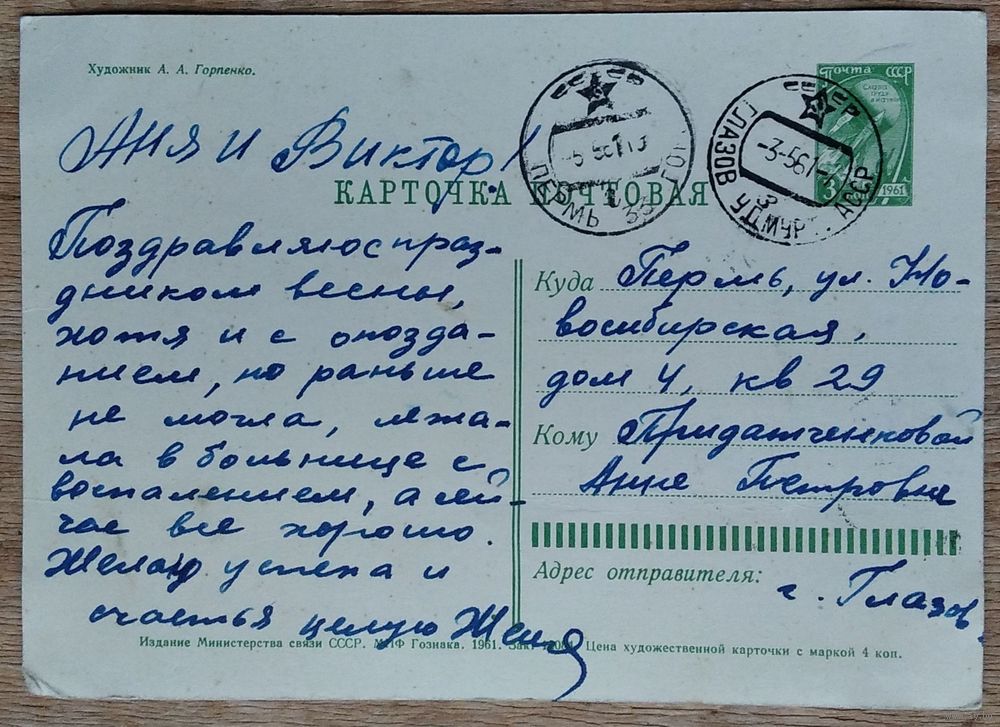 Художник А. А. Горпенко.
Почта СССР
Слава
труду
и науке
3
1961
СССР
ПЕРМЬ 35
СССР
ГЛАЗОВ УДМУРТ. АССР
-3-561-
3
КАРТОЧКА ПОЧТОВАЯ
Аня и Виктор!
Поздравляю с праз-
дником весны,
хотя и с опозда-
нием, но раньше
не могла, лежа-
ла в больнице с
воспалением, а сей-
час все хорошо.
Желаю успеха и
счастья целую Женя
Куда Пермь, ул. Но-
восибирская,
дом 4, кв 29
Кому Придатченковой
Анне Петровне
Адрес отправителя:
г. Глазов
Издание Министерства связи СССР. МПФ Гознака. 1961. Зак. Цена художественной карточки с маркой 4 коп.